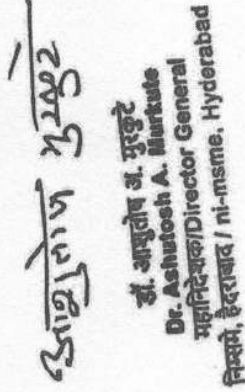 आशुतोष मुरकुटे
डॉ. आशुतोष अ. मुरकुटे
Dr. Ashutosh A. Murkute
महानिदेशक/Director General
निम्समे, हैदराबाद / ni-msme, Hyderabad